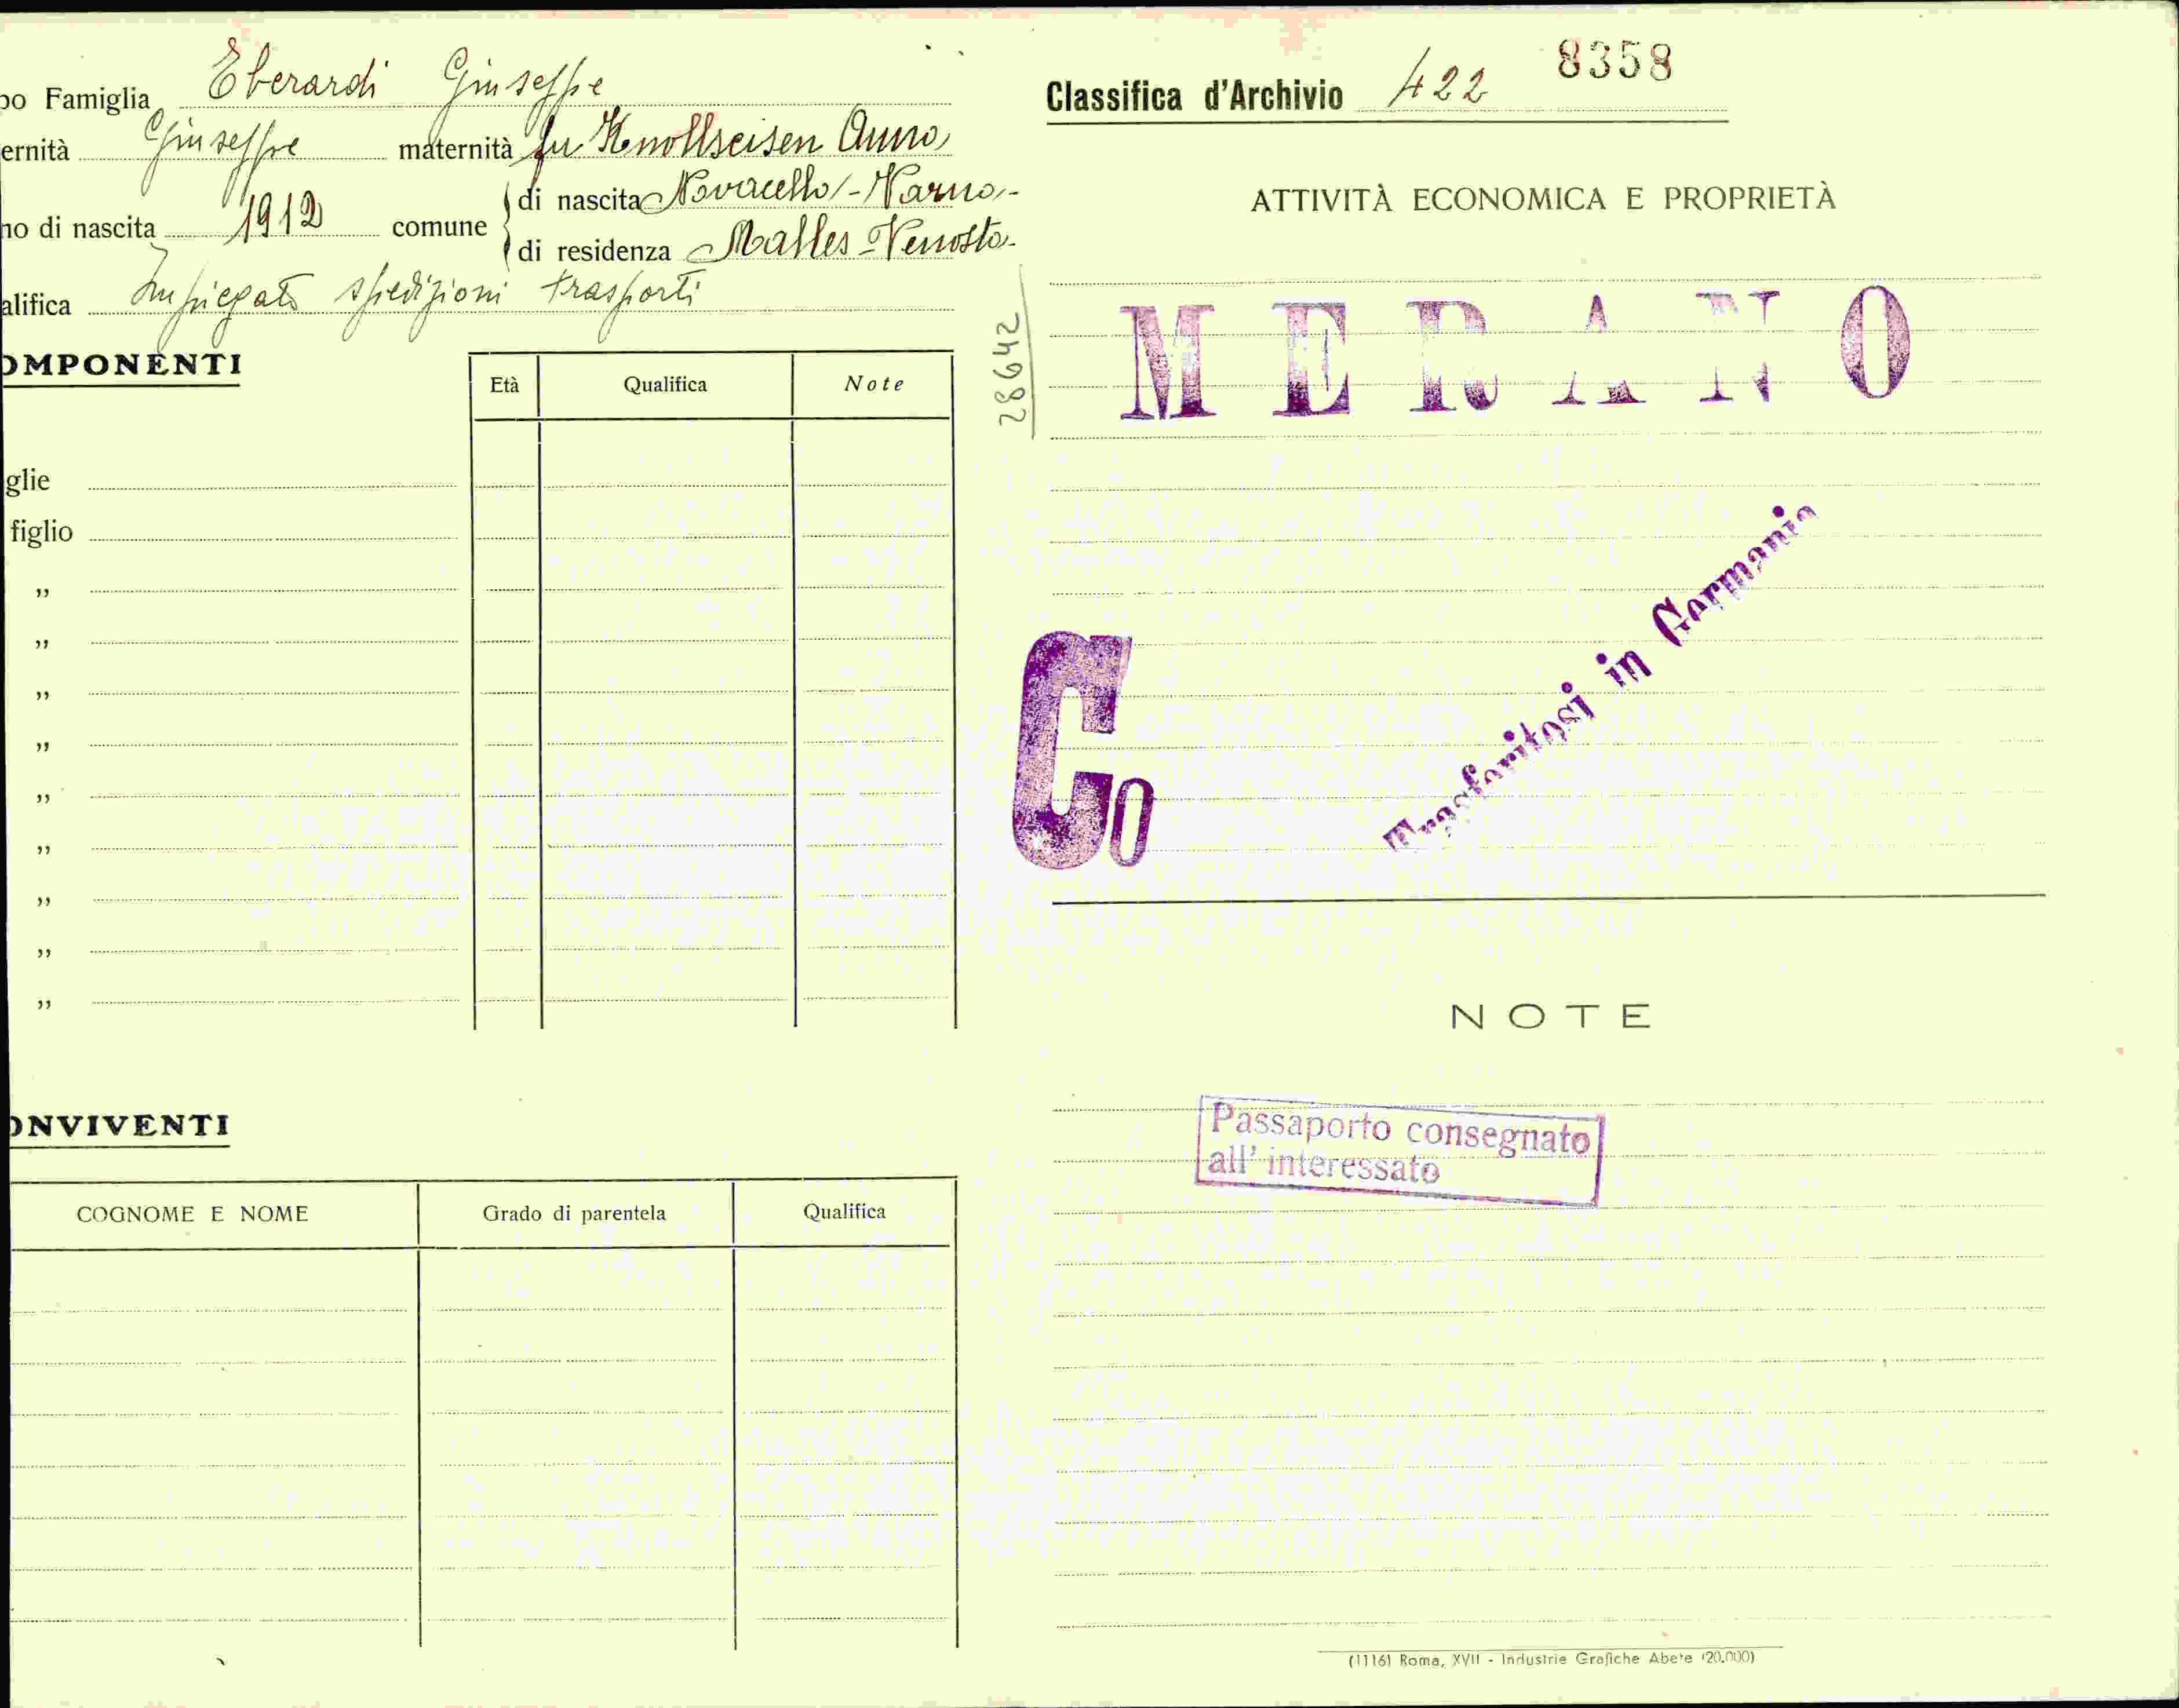 po Famiglia Eberardi Giuseppe
ernità Giuseppe maternità fu Knollseisen Anna
no di nascita 1912 comune
di nascita Novacello - Varna -
di residenza Malles Venosta -
alifica Impiegato spedizioni trasporti
OMPONENTI
Età Qualifica Note
glie
figlio
„
„
„
„
„
„
„
„
„
ONVIVENTI
COGNOME E NOME Grado di parentela Qualifica
28642
Classifica d'Archivio 422 8358
ATTIVITÀ ECONOMICA E PROPRIETÀ
MERANO
Trasferitosi in Germania
Co
NOTE
Passaporto consegnato
all' interessato
(1116) Roma, XVII - Industrie Grafiche Abete (20.000)